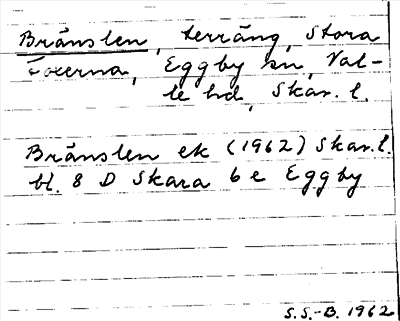 Bränslen, terräng, Stora
Foxerna, Eggby sn, Val-
le hd, Skar. l.
Bränslen ek (1962) Skar. l.
bl. 8 D Skara 6 e Eggby
S.S.-B. 1962